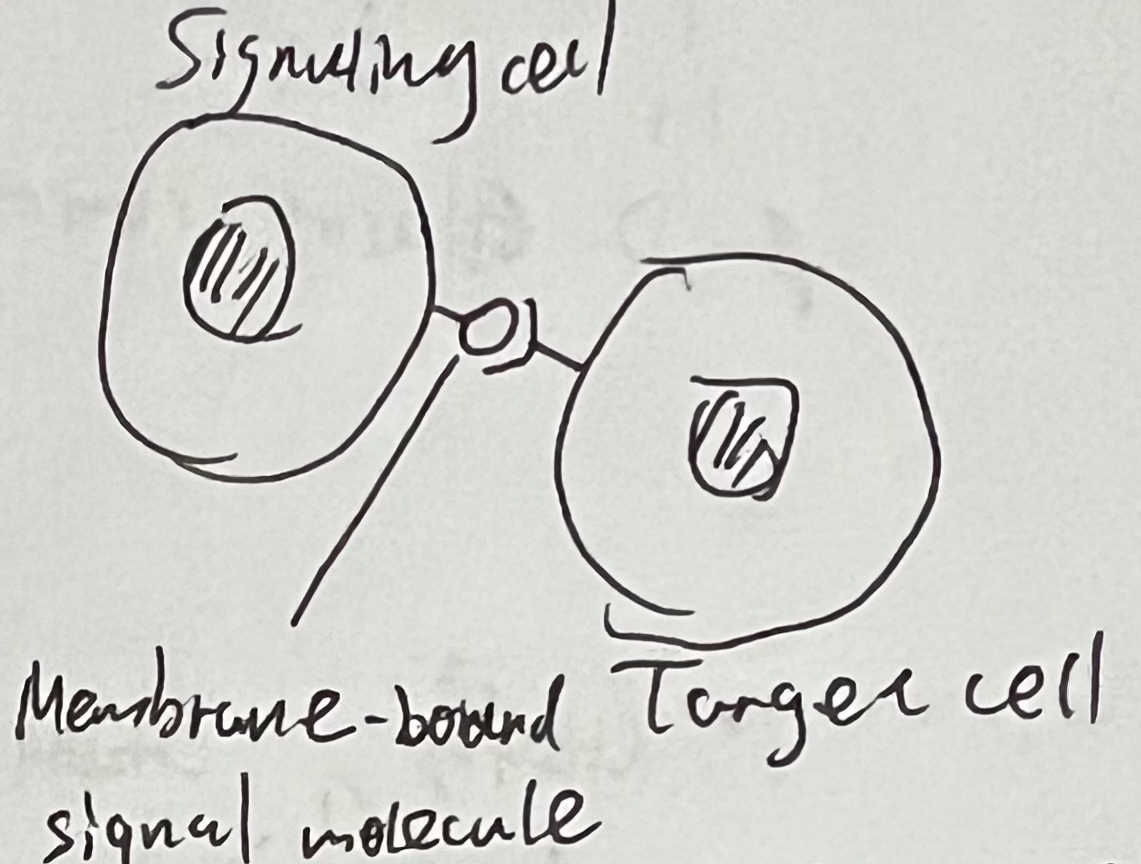 Signaling cell
Membrane-bound
signal molecule
Target cell